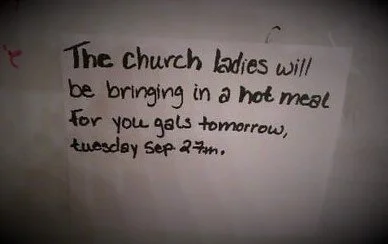 The church ladies will
be bringing in a hot meal
for you gals tomorrow,
tuesday Sep. 27th.